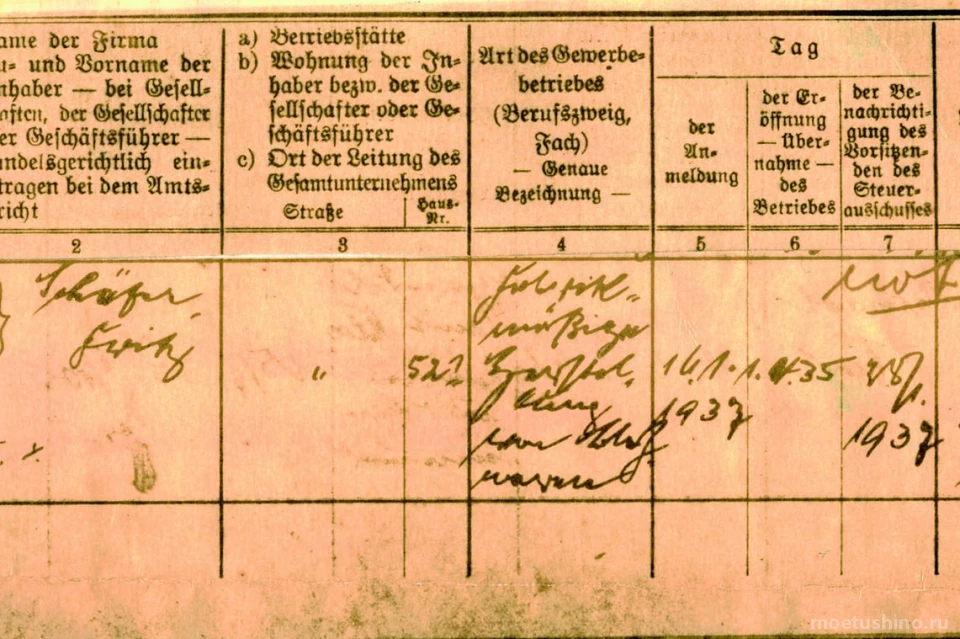 ame der Firma
u- und Vorname der
nhaber — bei Gesell-
aften, der Gesellschafter
er Geschäftsführer —
andelsgerichtlich ein-
tragen bei dem Amts-
richt
a) Betriebsstätte
b) Wohnung der In-
haber bezw. der Ge-
sellschafter oder Ge-
schäftsführer
c) Ort der Leitung des
Gesamtunternehmens
Straße
Haus-
Nr.
Art des Gewerbe-
betriebes
(Berufszweig,
Fach)
— Genaue
Bezeichnung —
Tag
der
An-
meldung
der Er-
öffnung
— Über-
nahme —
des
Betriebes
der Be-
nachrichti-
gung des
Vorsitzen-
den des
Steuer-
ausschusses
2
3
4
5
6
7
Schäfer
Fritz
„
52
Fabrik-
mäßige
Herstel-
lung
von
waren
1.4.35
1937
1937
moetushino.ru